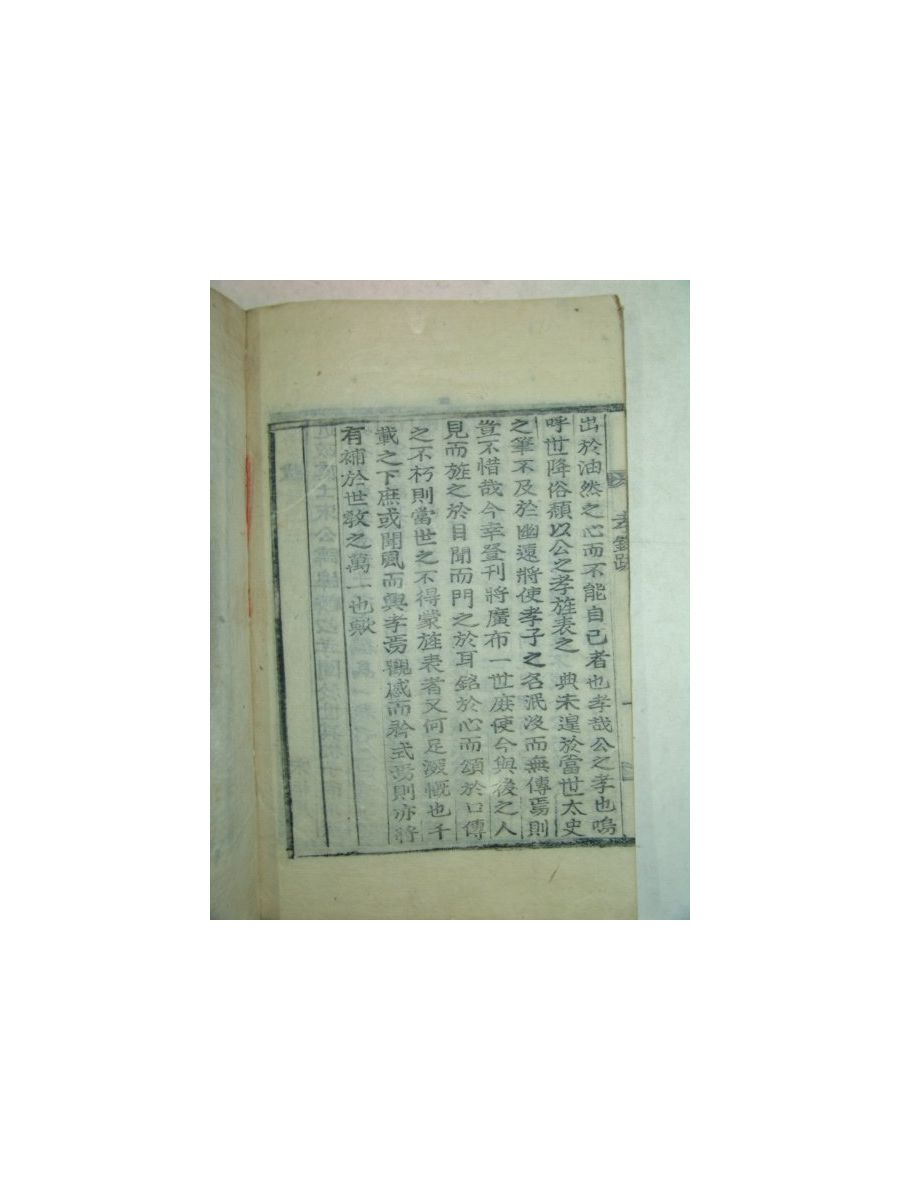 出於油然之心而不能自已者也孝哉公之孝也嗚
呼世降俗頹以公之孝旌表之典未遑於當世太史
之筆不及於幽遠將使孝子之名泯沒而無傳焉則
豈不惜哉今幸登刊將廣布一世庶使今與後之人
見而旌之於目聞而門之於耳銘於心而頌於口傳
之不朽則當世之不得蒙旌表者又何足漑慨也千
載之下庶或聞風而興孝焉觀感而矜式焉則亦將
有補於世敎之萬一也歟